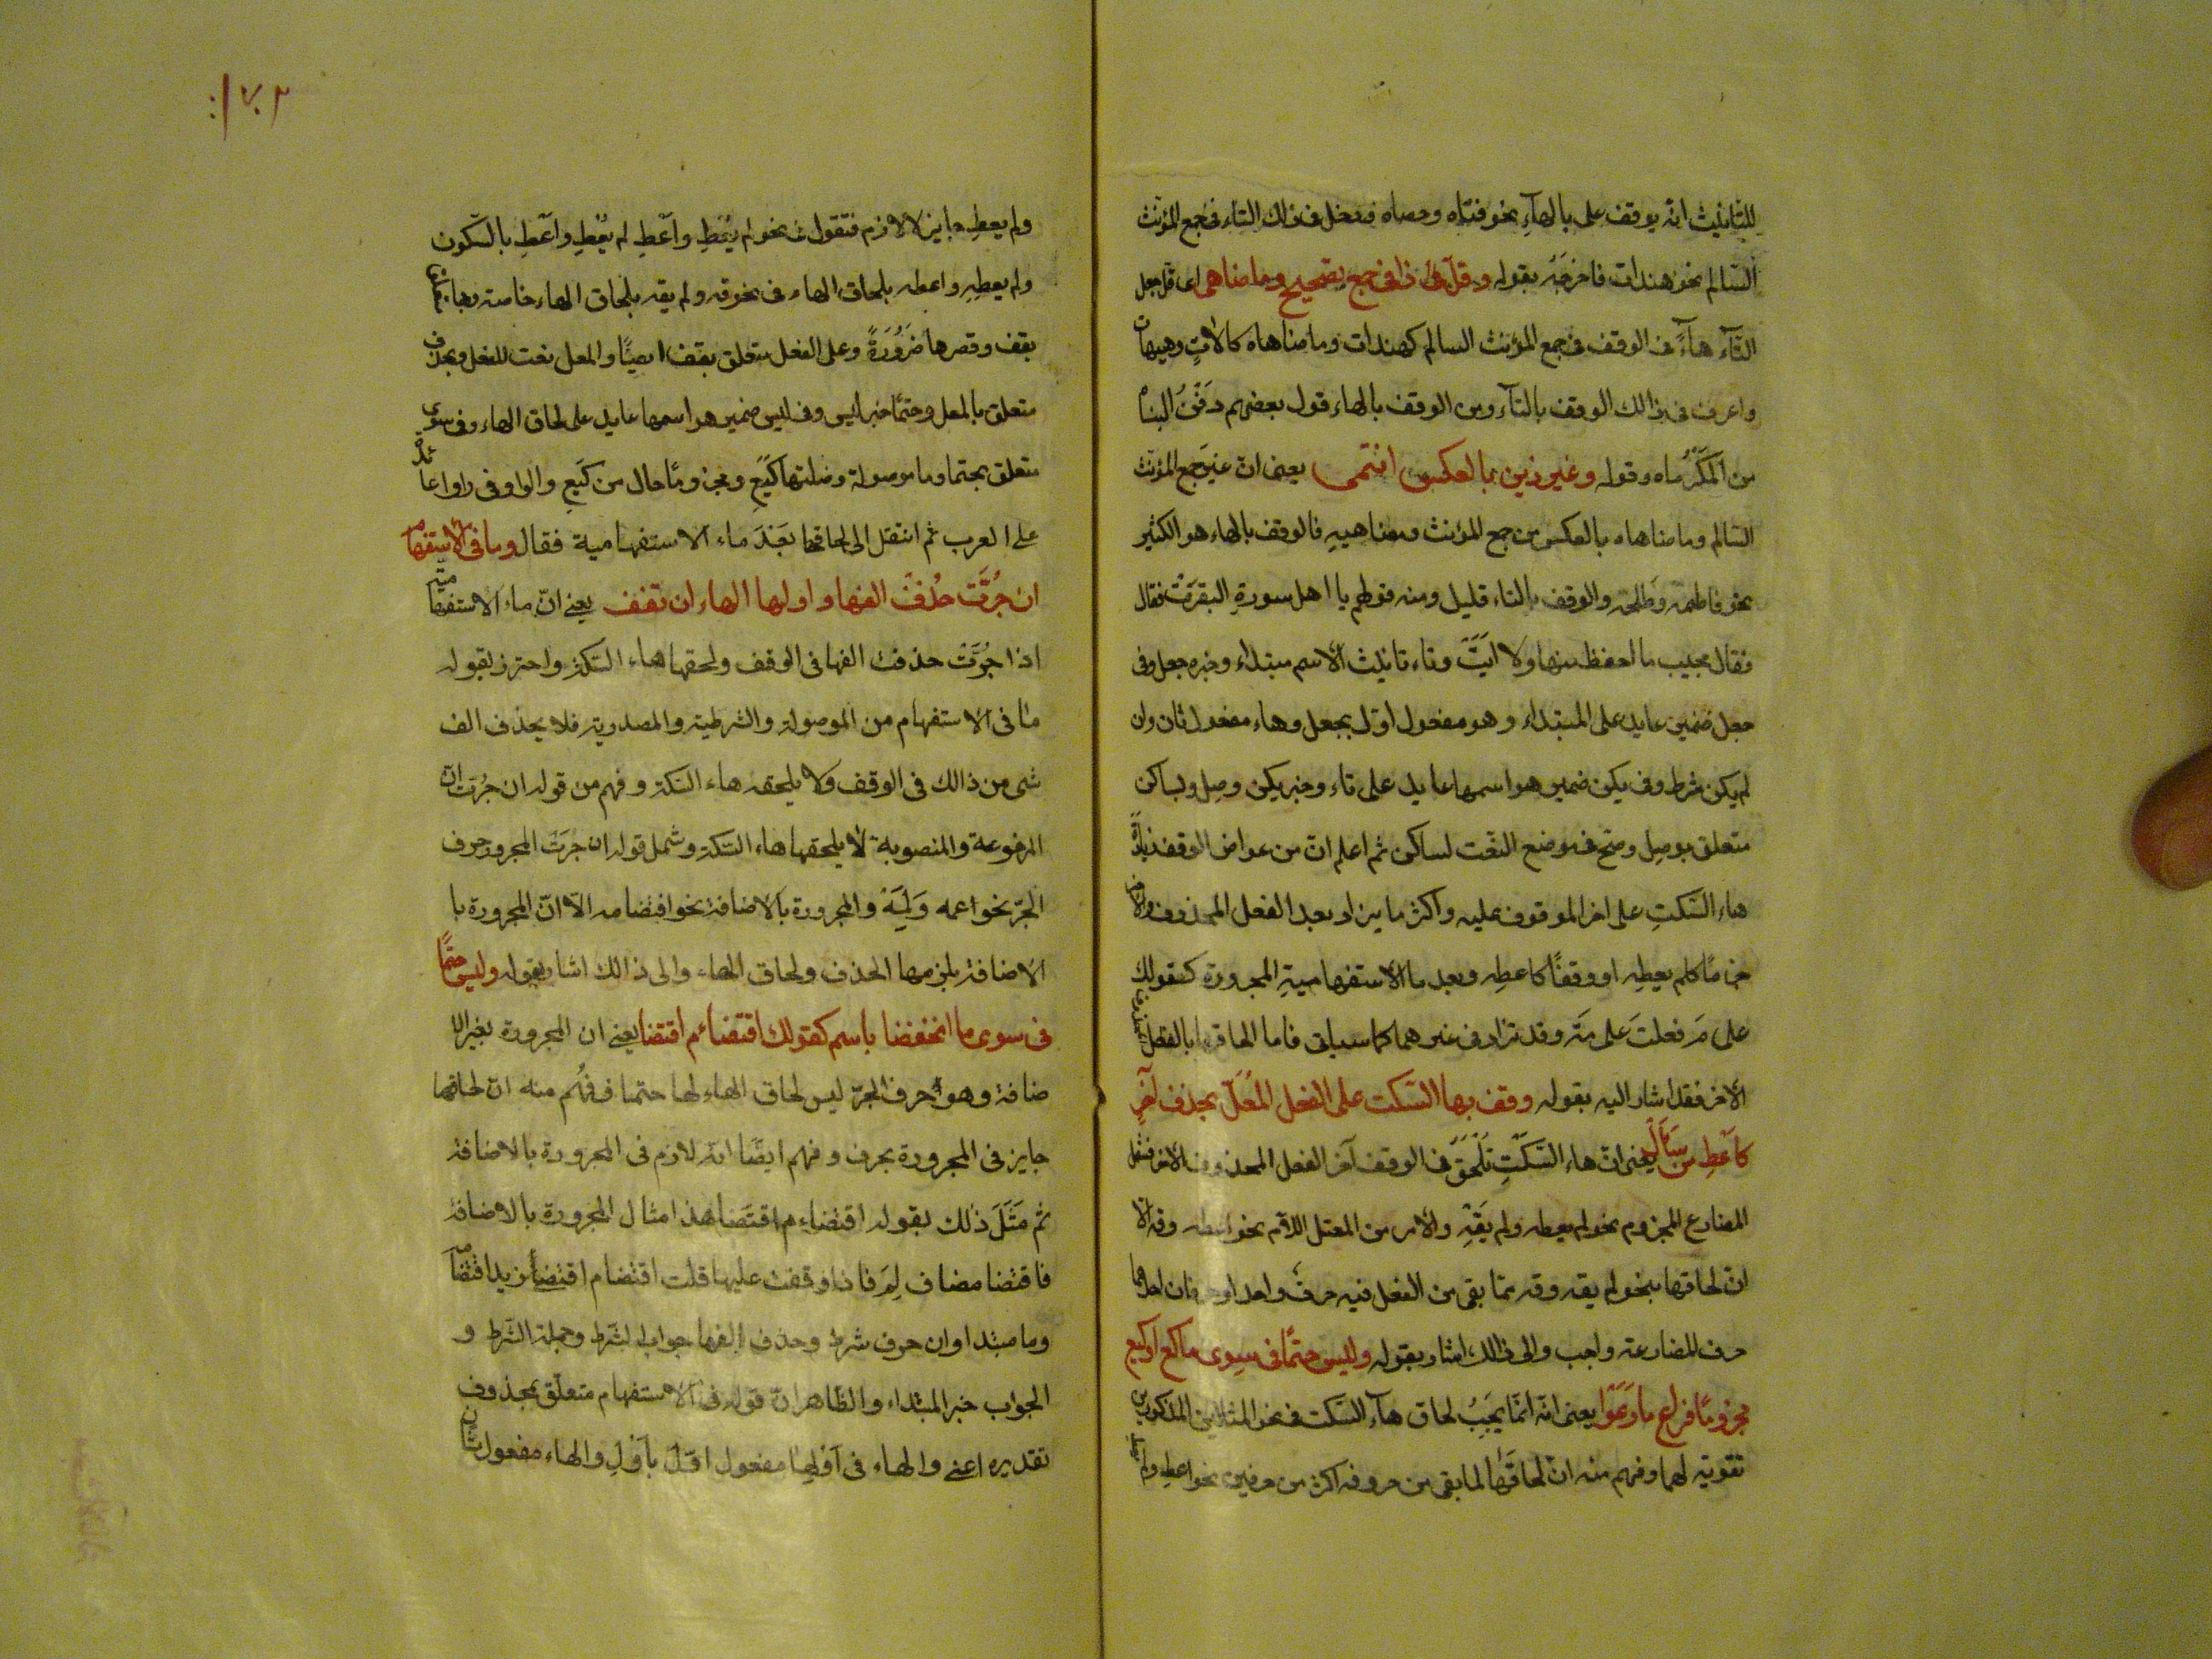 للتانيث انه يوقف على بالهآءِ نحو فتاه وحصاه فدخل فى ذلك التاء فى جمع المؤنث
السّالم نحو هندات فاخرجَهُ بقوله وقلّ ذا فى جمع تصحيح وما ضاهى اى قل جعل
التّآء هآءً فى الوقف فى جمع المؤنث السالم كهندات وما ضاهاه كالاتٍ وهيهات
واعرف فى ذالك الوقف بالتآء ومن الوقف بالهاء قول بعضهم دَفنُ البناه
من المَكرُماه وقوله وغير ذين بالعكس انتمى يعنى انّ غير جمع المؤنث
السّالم وما ضاهاه بالعكس من جمع المؤنث ومضاهيهِ فالوقف بالهاء هو الكثير
نحو فاطمة وَطلحة والوقف بالتاء قليل ومنه قولهم يا اهل سورةِ البقرَتْ فقال
فقال مجيب ما احفظ منها ولا ايَتْ وتاء تانيث الاسم مبتداء وخبره جعل وفى
جعل ضمير عايد على المبتداء وهو مفعول اوّل بجعل وهاء مفعول ثان وان
لم يكن شرط وفى يكن ضمير هو اسمها عايد على تاء وخبر يكن وصِل وبساكن
متعلق بوصِل وصَح فى موضع النعْت لساكن ثم اعلم انّ من عوارض الوقف زيادةً
هاء السّكتِ على اخر الموقوف عليه واكثر ما يزاد بعد الفعل المحذوف الاخر
جزمًا كلم يعطِه او وقفًا كاعطِه وبعد ما الاستفهاميةِ المجرورة كقولك
على مَ فعلتَ على مَهْ وقد تزاد فى غير هما كما سياتى فاما الحاقها بالفعل المحذوف
الاخر فقد اشار اليه بقوله وقف بها السّكت على الفعل المُعَلّ بحذف آخِرٍ
كاَعْطِ من سَاَلَ يعنى انّ هاء السَّكْتِ تَلْحَق فى الوقف آخر الفعل المحذوف الاخر فشمل
المضارع المجزوم نحو لم يعطه ولم يَقِهْ والامر من المعتل اللّام نحو اعطه وقه الا
انّ لحاقها نحو لم يقه وقه ممّا بقى من الفعل فيه حرفٌ واحد او حرفان احدهما
حرف المضارعة واجب والى ذالك اشار بقوله وليس حتمًا فى سِوى ما كع او كيع
مجزومًا فراع ما رَعَوْا يعنى انّه انّما يَجِبُ لحاق هآء السّكت فى نحو المثالين المذكورين
تقوية لهما وفهم منه انّ لحاقَها لما بقى من حروفه اكثر من حرفين نحو اعطِه ولم يعطِه
١٧٠٢
ولم يعطِه جايز لا لازم فتقول فى نحو لم يُعْطِ واَعْطِ لم يُعْطِ واَعْطِ بالسّكون
ولم يعطِهِ واعطه بلحاق الهاء فى نحو قه ولم يقه بلحاق الهاء خاصة وبها
بقف وقصرها ضَرُورَةً وعلى الفعل متعلق بقف ايضًا والمعل نعت للفعل وبحذف
متعلق بالمعل وحتمًا خبر ليس وفى ليس ضمير هو اسمها عايد على لحاق الهاء وفى سوى
متعلق بحتما وما موصولة وصلتها كَيَعِ ومجزومًا حال من كيَعِ والواو فى راوا عائد
على العرب ثم انتقل الى لحاقها بَعْدَ ماء الاستفهامية فقال وما فى الاستفهام
ان جُرَّت حُذفَ الفها واولها الهاء ان تقف يعنى انّ ماء الاستفهامية
اذا جُرَّتْ حذفت الفها فى الوقف ولحقها هاء السّكت واحترز بقوله
ما فى الاستفهام من الموصولة والشرطية والمصدرية فلا يحذف الف
شى من ذالك فى الوقف ولا يلحقه هاء السّكت وفهم من قوله ان جُرّت انّ
المرفوعة والمنصوبة لا يلحقها هاء السّكت وشمل قوله ان جرّت المجرور حرف
الجرّ نحو اعمه وَلِمَهْ والمجرورة بالاضافة نحو اقتضا مه الّا انّ المجرورة با
الاضافة يلزمها الحذف ولحاق الهاء والى ذالك اشار بقوله وليس حتمًا
فى سوى ما انخفضا باسم كقولك اقتضاء م اقتضا يعنى ان المجرورة بغير الا
ضافة وهو حرف الجرّ ليس لحاق الهاء لها حتما ففُهُم منه انّ لحاقها
جايز فى المجرورة بحرف وفهم ايضًا انّه لازم فى المجرورة بالاضافة
ثم مَثَّلَ ذلك بقوله اقتضاء م اقتَضا هذا مثال المجرورة بالاضافة
فاقتضا مضاف لِمَ فاذا وقفت عليها قلت اقتضا م اقتضاُ زيد اقتضا مه
وما مبتدا وان حرف شرط وحذف الفها جواب الشّرط وجملة الشّرط و
الجواب خبر المبتداء والظّاهر انّ قوله فى الاستفهام متعلّق بمحذوف
تقديره اعنى والهاء فى اَوْلِها مفعول اوّل بآوْلِ والهاء مفعول ثان